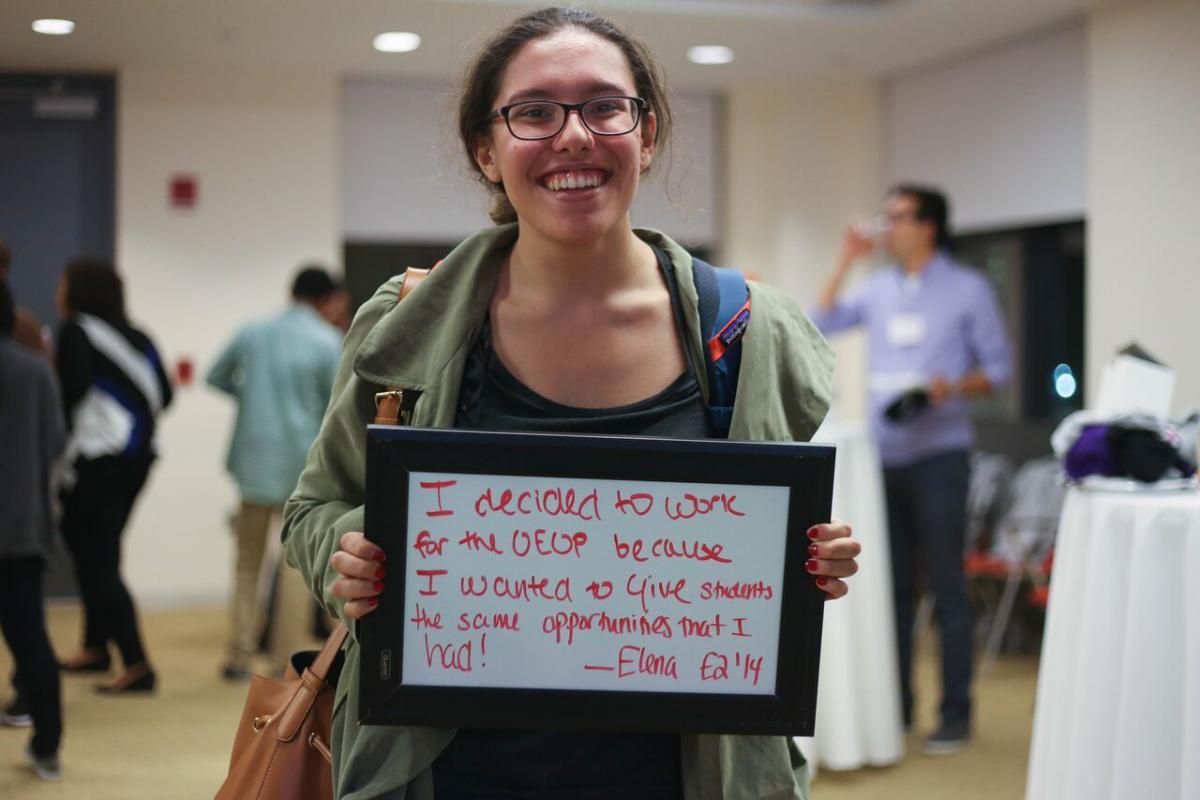 I decided to work
for the OEOP because
I wanted to Give students
the same opportunities that I
had! —Elena E2 '14
Quartet